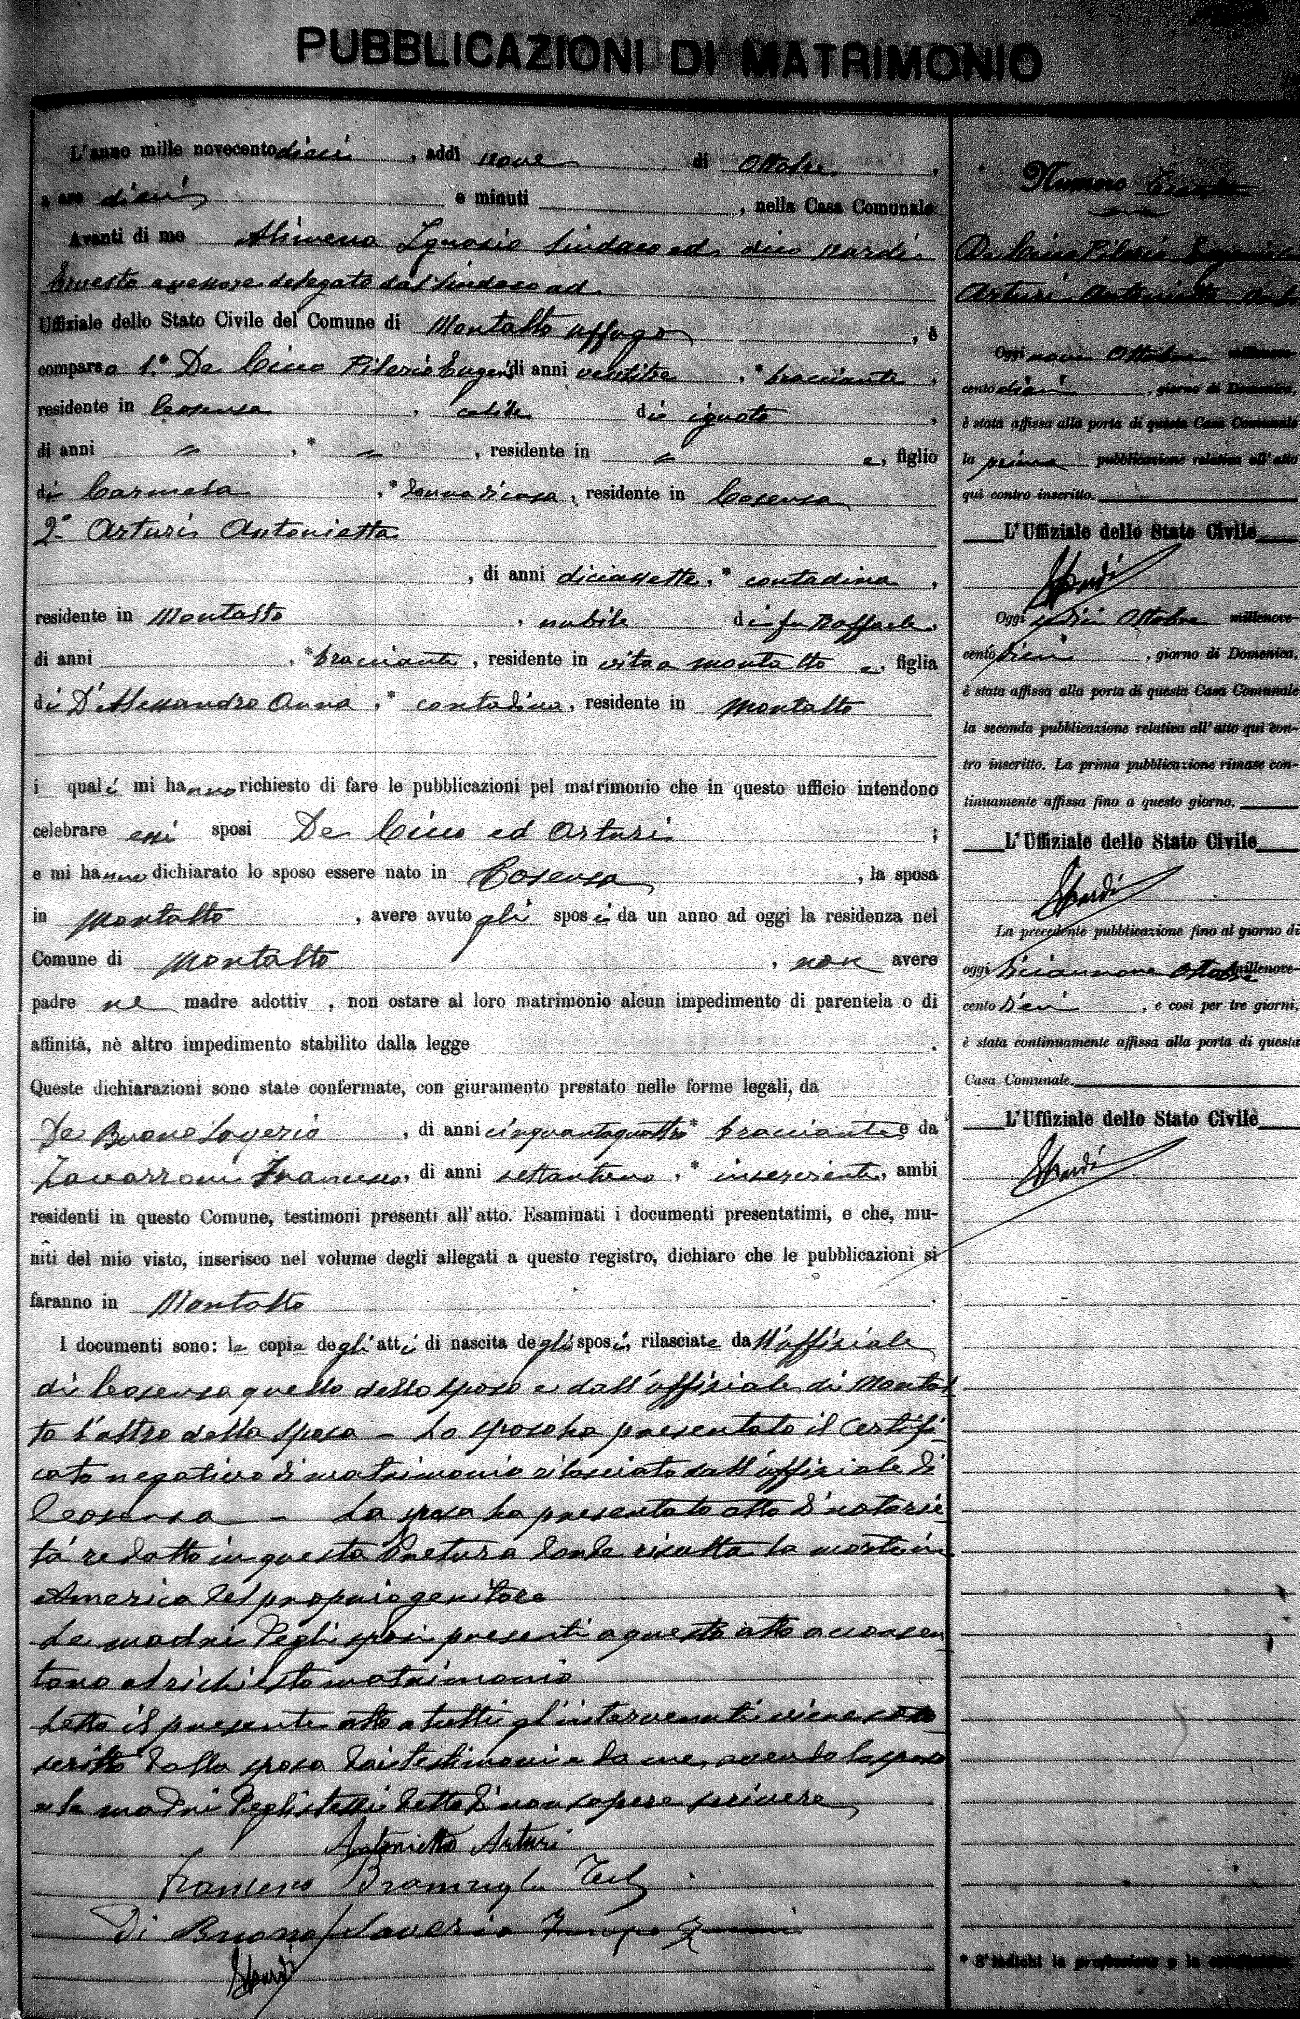 PUBBLICAZIONI DI MATRIMONIO
L'anno mille novecento dieci, addì nove di Ottobre,
a ore dieci e minuti , nella Casa Comunale
Avanti di me Alimena Ignazio Sindaco ed
Ernesto assessore delegato dal Sindaco ad
Uffiziale dello Stato Civile del Comune di Montalto Uffugo, è
comparso 1.° De Cicco Pilerio Eugenio di anni ventitre, * bracciante,
residente in Cosenza, celibe di ignoto
di anni " , * " , residente in " e, figlio
di Carmela, * donna di casa, residente in Cosenza
2° Arturi Antonietta
, di anni diciassette, * contadina,
residente in Montalto, nubile di fu Raffaele,
di anni , * bracciante, residente in vita a Montalto e, figlia
di D'Alessandro Anna, * contadina, residente in Montalto
i quali mi hanno richiesto di fare le pubblicazioni pel matrimonio che in questo ufficio intendono
celebrare essi sposi De Cicco ed Arturi ;
e mi hanno dichiarato lo sposo essere nato in Cosenza, la sposa
in Montalto, avere avuto gli sposi da un anno ad oggi la residenza nel
Comune di Montalto, non avere
padre nè madre adottiv , non ostare al loro matrimonio alcun impedimento di parentela o di
affinità, nè altro impedimento stabilito dalla legge .
Queste dichiarazioni sono state confermate, con giuramento prestato nelle forme legali, da
De Buono Saverio, di anni cinquantaquattro * bracciante e da
Francesco, di anni settantuno, * inserviente, ambi
residenti in questo Comune, testimoni presenti all'atto. Esaminati i documenti presentatimi, e che, mu-
niti del mio visto, inserisco nel volume degli allegati a questo registro, dichiaro che le pubblicazioni si
faranno in Montalto .
I documenti sono: le copie degli atti di nascita degli sposi, rilasciate dall'uffiziale
di Cosenza quello dello sposo e dall'uffiziale di Montal
to l'altro della sposa - Lo sposo ha presentato il certifi
cato negativo di matrimonio rilasciato dall'uffiziale di
Cosenza - La sposa ha presentato atto di notorie
tà redatto in questa Pretura donde risulta la morte in
America del proprio genitore
Le madri degli sposi presenti a questo atto acconsen
tono al richiesto matrimonio
Letto il presente atto a tutti gl'intervenuti viene sotto
scritto dalla sposa dai testimoni e da me, avendo lo sposo
e le madri degli stessi detto di non sapere scrivere
Antonietta Arturi
Francesco
Di Buono Saverio
Numero
De Cicco Pilerio Eugenio
Arturi Antonietta
Oggi nove Ottobre millenove-
cento dieci, giorno di Domenica,
è stata affissa alla porta di questa Casa Comunale
la prima pubblicazione relativa all'atto
quì contro inscritto.
L'Uffiziale dello Stato Civile
Oggi sedici Ottobre millenove-
cento dieci, giorno di Domenica,
è stata affissa alla porta di questa Casa Comunale
la seconda pubblicazione relativa all'atto quì con-
tro inscritto. La prima pubblicazione rimase con-
tinuamente affissa fino a questo giorno.
L'Uffiziale dello Stato Civile
La precedente pubblicazione fino al giorno di
oggi diciannove Ottobre millenove-
cento dieci, e così per tre giorni,
è stata continuamente affissa alla porta di questa
Casa Comunale.
L'Uffiziale dello Stato Civile
* S'indichi la professione o la condizione.